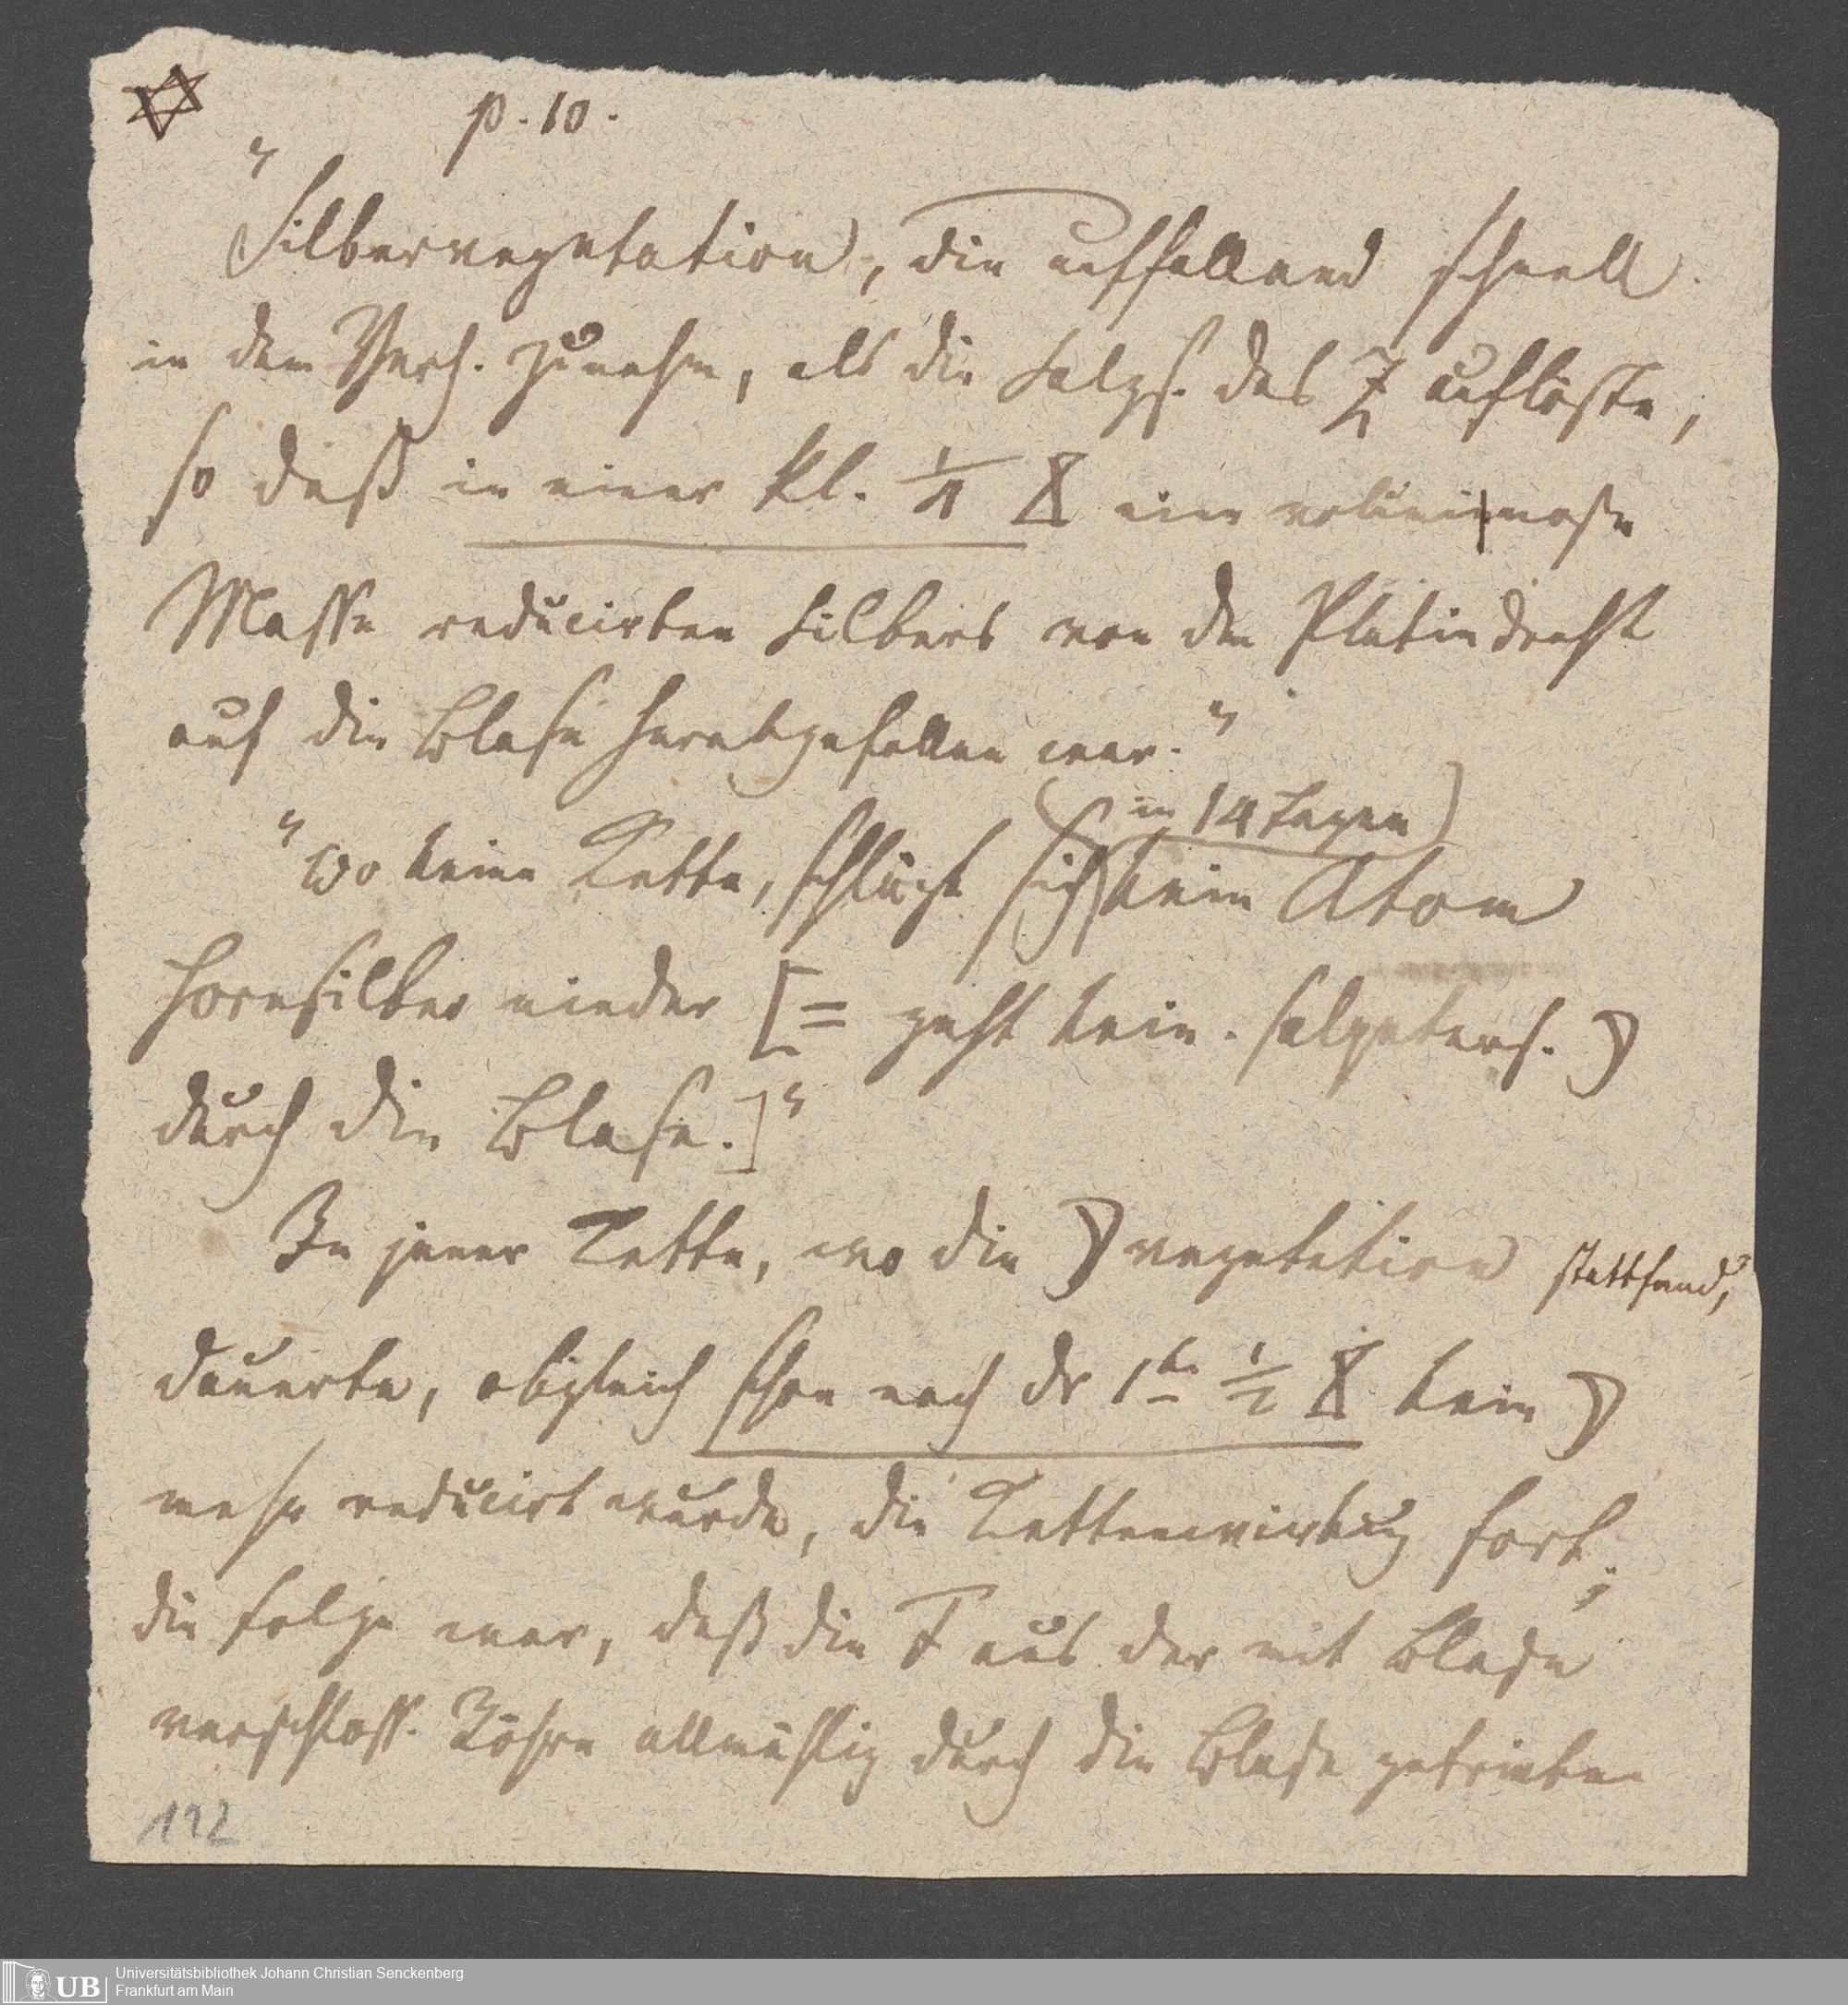 ✡ p. 10.
"Silbervegetation, die auffallend schnell
in dem Vers. zunahm, als die Salzs. das Z auflöste,
so daß in einer kl. 1/4 ⧖ eine voluminose
Masse reducirten Silbers von dem Platindraht
auf die Blase herabgefallen war."
(in 14 Tagen)
"Wo keine Kette, schlägt sich kein Atom
Hornsilber nieder [= geht kein. salpeters. ☽
durch die Blase.]"
In jener Kette, wo die ☽vegetation stattfand,
dauerte, obgleich schon nach dr 1ten 1/2 ⧖ kein ☽
mehr reducirt wurde, die Kettenwirkung fort;
die Folge war, daß die F aus der mit Blase
verschloss. Röhre allmählig durch die Blase getrieben
192
UB Universitätsbibliothek Johann Christian Senckenberg
Frankfurt am Main